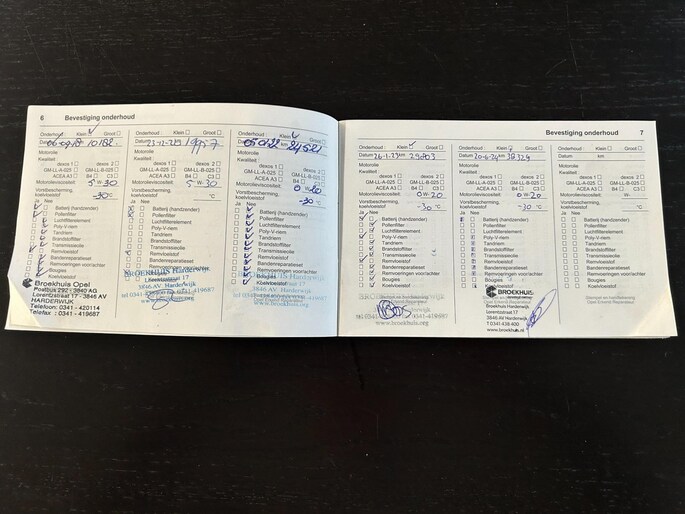 6 Bevestiging onderhoud
Onderhoud: Klein Groot
Datum 10182
Motorolie
Kwaliteit:
dexos 1 dexos 2
GM-LL-A-025 GM-LL-B-025
ACEA A3 B4 C3
Motorolieviscositeit: 5 W 30
Vorstbescherming, koelvloeistof -30 °C
Ja Nee
Batterij (handzender)
Pollenfilter
Luchtfilterelement
Poly-V-riem
Tandriem
Brandstoffilter
Transmissieolie
Remvloeistof
Bandenreparatieset
Remvoeringen voor/achter
Bougies
Koelvloeistof
Broekhuis Opel
Postbus 292 - 3840 AG
Lorentzstraat 17 - 3846 AV
HARDERWIJK
Telefoon: 0341 - 420114
Telefax : 0341 - 419687
Onderhoud: Klein Groot
Datum 23-12-2019
Motorolie
Kwaliteit:
dexos 1 dexos 2
GM-LL-A-025 GM-LL-B-025
ACEA A3 B4 C3
Motorolieviscositeit: 5 W 30
Vorstbescherming, koelvloeistof °C
Ja Nee
Batterij (handzender)
Pollenfilter
Luchtfilterelement
Poly-V-riem
Tandriem
Brandstoffilter
Transmissieolie
BROEKHUIS Harderwijk
Lorentzstraat 17
3846 AV Harderwijk
www.broekhuis.org
Onderhoud: Klein Groot
Datum km
Motorolie
Kwaliteit:
dexos 1 dexos 2
GM-LL-A-025 GM-LL-B-025
ACEA A3 B4 C3
Motorolieviscositeit: 0 W 20
Vorstbescherming, koelvloeistof -30 °C
Ja Nee
Batterij (handzender)
Pollenfilter
Luchtfilterelement
Poly-V-riem
Tandriem
Brandstoffilter
Transmissieolie
Remvloeistof
Bandenreparatieset
Remvoeringen voor/achter
Bougies
Koelvloeistof
3846 AV Harderwijk
www.broekhuis.org
Bevestiging onderhoud 7
Onderhoud: Klein Groot
Datum 26-1-23 km
Motorolie
Kwaliteit:
dexos 1 dexos 2
GM-LL-A-025 GM-LL-B-025
ACEA A3 B4 C3
Motorolieviscositeit: 0 W 20
Vorstbescherming, koelvloeistof -30 °C
Ja Nee
Batterij (handzender)
Pollenfilter
Luchtfilterelement
Poly-V-riem
Tandriem
Brandstoffilter
Transmissieolie
Remvloeistof
Bandenreparatieset
Remvoeringen voor/achter
Bougies
Koelvloeistof
www.broekhuis.org
Onderhoud: Klein Groot
Datum 20-6-24 km 38324
Motorolie
Kwaliteit:
dexos 1 dexos 2
GM-LL-A-025 GM-LL-B-025
ACEA A3 B4 C3
Motorolieviscositeit: 0 W 20
Vorstbescherming, koelvloeistof -30 °C
Ja Nee
Batterij (handzender)
Pollenfilter
Luchtfilterelement
Poly-V-riem
Tandriem
Brandstoffilter
Transmissieolie
Remvloeistof
Bandenreparatieset
Remvoeringen voor/achter
Bougies
Koelvloeistof
BROEKHUIS
Lorentzstraat 17
3846 AV Harderwijk
T 0341-438 400
www.broekhuis.nl
Onderhoud: Klein Groot
Datum km
Motorolie
Kwaliteit:
dexos 1 dexos 2
GM-LL-A-025 GM-LL-B-025
ACEA A3 B4 C3
Motorolieviscositeit: W
Vorstbescherming, koelvloeistof °C
Ja Nee
Batterij (handzender)
Pollenfilter
Luchtfilterelement
Poly-V-riem
Tandriem
Brandstoffilter
Transmissieolie
Remvloeistof
Bandenreparatieset
Remvoeringen voor/achter
Bougies
Koelvloeistof